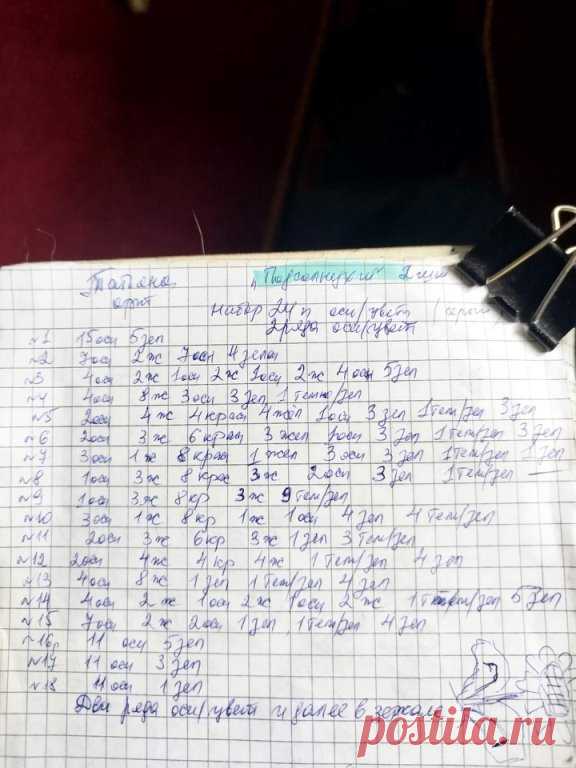 Татьяна "Подсолнухи" 2 шт
опт набор 24 п осн/цвет (серый
2 ряда осн/цвет
№1 15 осн 5 зел
№2 7 осн 2 ж 7 осн 4 зелен
№3 4 осн 2 ж 1 осн 2 ж 1 осн 2 ж 4 осн 5 зел
№4 4 осн 8 ж 3 осн 3 зел 1 темно/зел
№5 2 осн 4 ж 4 красн 4 жел 1 осн 3 зел 1 тем/зел 3 зел
№6 2 осн 3 ж 6 красн 3 жел 1 осн 3 зел 1 тем/зел 3 зел
№7 3 осн 1 ж 8 красн 1 жел 3 осн 3 зел 1 тем/зел 1 зел
№8 1 осн 3 ж 8 крас 3 ж 2 осн 3 зел 1 тем/зел
№9 1 осн 3 ж 8 кр 3 ж 9 тем/зел
№10 3 осн 1 ж 8 кр 1 ж 1 осн 4 зел 4 тем/зел
№11 2 осн 3 ж 6 кр 3 ж 1 зел 3 тем/зел
№12 2 осн 4 ж 4 кр 4 ж 1 тем/зел 4 зел
№13 4 осн 8 ж 1 зел 1 тем/зел 4 зел
№14 4 осн 2 ж 1 осн 2 ж 1 осн 2 ж 1 тем/зел 5 зел
№15 7 осн 2 ж 2 осн 1 зел 1 тем/зел 4 зел
№16р 11 осн 5 зел
№17 11 осн 3 зел
№18 11 осн 1 зел
Два ряда осн/цвет и далее в зеркало
postila.ru